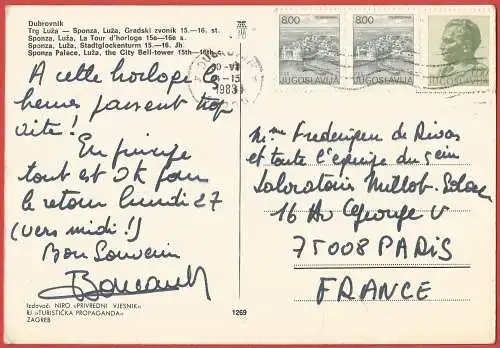 Dubrovnik
Trg Luža — Sponza, Luža, Gradski zvonik 15.—16. st.
Sponza, Luža, La Tour d'horloge 15e—16e s.
Sponza, Luža, Stadtglockenturm 15.—16. Jh.
Sponza Palace, Luža, the City Bell-tower 15th—16th
8.00
8.00
JUGOSLAVIJA
JUGOSLAVIJA
JUGOSLAVIJA
-15
1983
A cette horloge les
heures passent trop
vite !
En principe
tout est OK pour
le retour lundi 27
(vers midi !)
Bon Souvenir
Mme Frederique de Rivas
et toute l'équipe du sein
Laboratoires Millot-
16 Av George V
75008 PARIS
FRANCE
Izdavač: NIRO »PRIVREDNI VJESNIK«
RJ »TURISTIČKA PROPAGANDA«
ZAGREB
1269